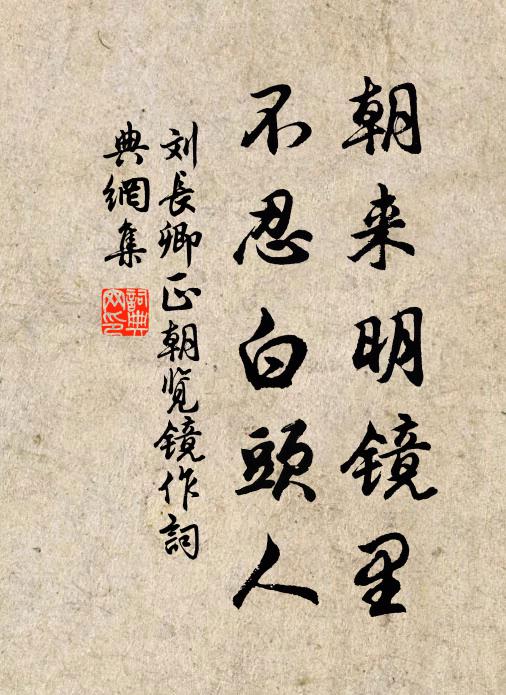 朝来明镜里
不忍白頭人
刘長卿正朝览镜作詞
典網集
詞典
网印